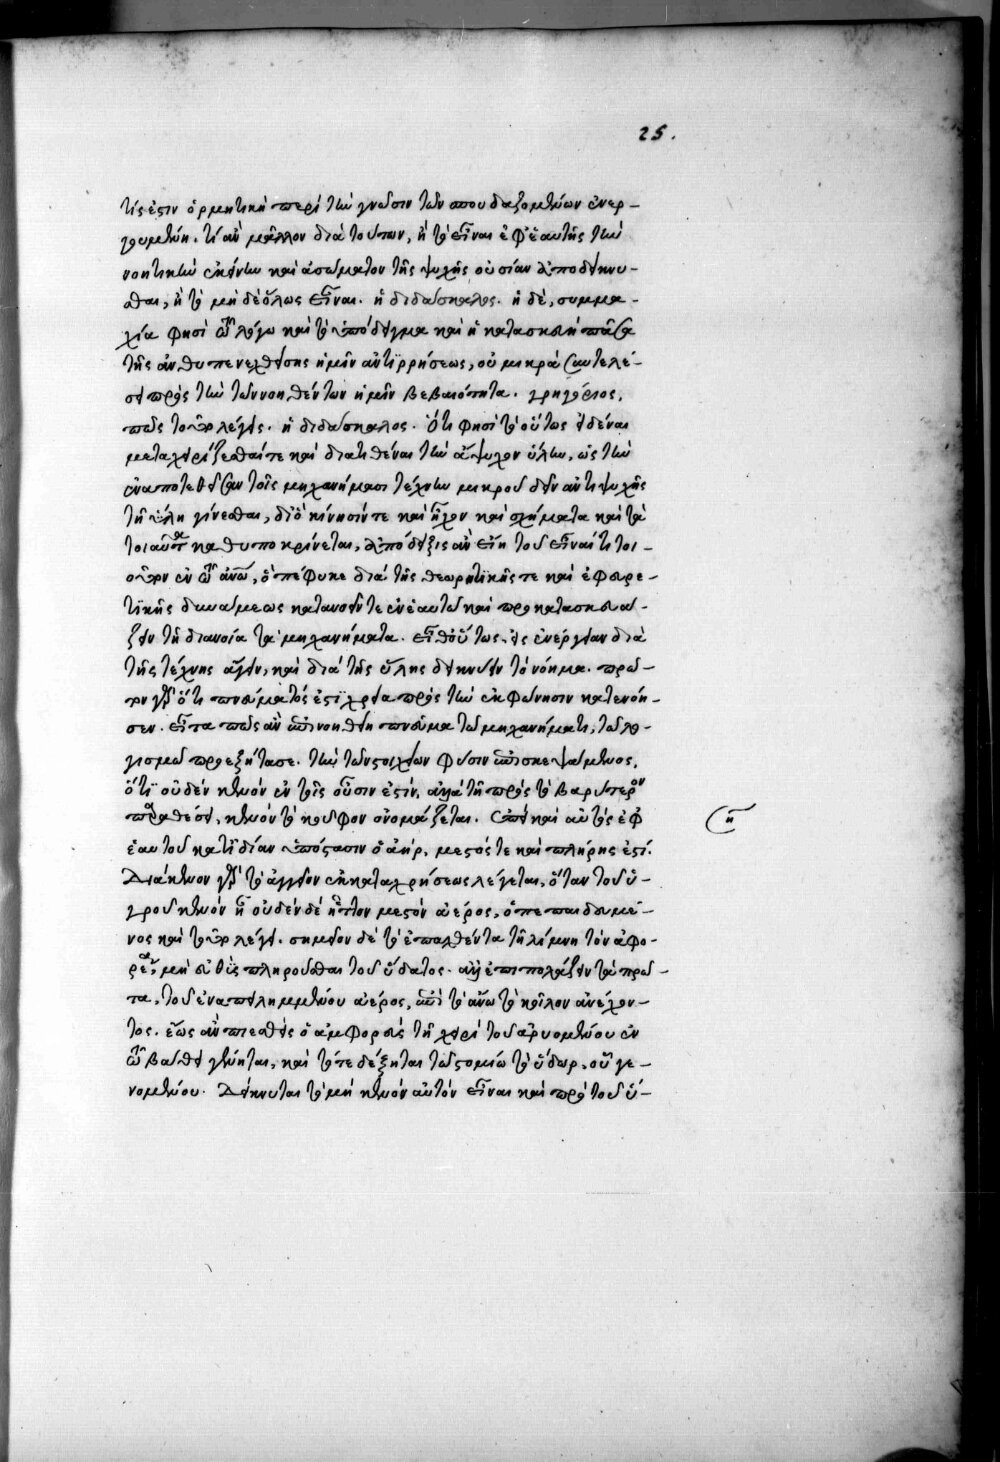 25.
τίς ἐστιν ὁρμητικὴ περὶ τὴν γνῶσιν τῶν σπουδαζομένων ἐνερ-
γουμένη. τί ἂν μᾶλλον διὰ τούτων, ἢ τὸ εἶναι ἐφ' ἑαυτῆς τὴν
νοητικὴν ἐκείνην καὶ ἀσώματον τῆς ψυχῆς οὐσίαν ἀποδείκνυ-
σθαι, ἢ τὸ μηδὲ ὅλως εἶναι. ἡ διδάσκαλος. ἡ δὲ, συμμα-
χία φησὶ τῷ λόγῳ καὶ τὸ ὑπόδειγμα καὶ ἡ κατασκευὴ πᾶσα
τῆς ἀνθυπενεχθείσης ἡμῖν ἀντιρρήσεως, οὐ μικρὰ συντελέ-
σει πρὸς τὴν τῶν νοηθέντων ἡμῖν βεβαιότητα. γρηγόριος.
πῶς τοῦτο λέγεις. ἡ διδάσκαλος. Ὅτι φησὶ τὸ οὕτως εἰδέναι
μεταχειρίζεσθαί τε καὶ διατιθέναι τὴν ἄψυχον ὕλην, ὡς τὴν
ἐναποτεθεῖσαν τοῖς μηχανήμασι τέχνην μικροῦ δεῖν ἀντὶ ψυχῆς
τῇ ὕλῃ γίνεσθαι, δι' ὃ κίνησίν τε καὶ ἦχον καὶ σχήματα καὶ τὰ
τοιαῦτα καθυποκρίνεται, ἀπόδειξις ἂν εἴη τοῦ εἶναί τι τοι-
οῦτον ἐν τῷ ἀνῶ, ὃ πέφυκε διὰ τῆς θεωρητικῆς τε καὶ ἐφευρε-
τικῆς δυνάμεως κατανοεῖν τε ἐν ἑαυτῷ καὶ προκατασκευά-
ζειν τῇ διανοίᾳ τὰ μηχανήματα. εἶθ' οὕτως εἰς ἐνέργειαν διὰ
τῆς τέχνης ἄγειν, καὶ διὰ τῆς ὕλης δεικνύειν τὸ νόημα. πρῶ-
τον γὰρ ὅτι πνεύματός ἐστι χρεία πρὸς τὴν ἐκφώνησιν κατενόη-
σεν. εἶτα πῶς ἂν ἐπινοηθείη πνεῦμα τῷ μηχανήματι, τῷ λο-
γισμῷ προεξήτασε. τὴν τῶν στοιχείων φύσιν ἐπισκεψάμενος,
ὅτι οὐδὲν κενόν ἐν τοῖς οὖσίν ἐστιν, ἀλλὰ τῇ πρὸς τὸ βαρύτερον
παραθέσει, κενὸν τὸ κοῦφον ὀνομάζεται. ἐπεὶ καὶ αὐτὸς ἐφ'
ἑαυτοῦ κατ' ἰδίαν ὑπόστασιν ὁ ἀήρ, μεστός τε καὶ πλήρης ἐστί.
Διάκενον γὰρ τὸ ἀγγεῖον ἐκ καταχρήσεως λέγεται, ὅταν τοῦ ὑ-
γροῦ κενὸν ᾖ οὐδὲν δὲ ἧττον μεστὸν ἀέρος, ὁ πεπαιδευμέ-
νος καὶ τοῦτο λέγει. σημεῖον δὲ τὸ ἐπαχθέντα τῇ λίμνῃ τὸν ἀμφο-
ρέα, μὴ εὐθὺς πληροῦσθαι τοῦ ὕδατος. ἀλλ' ἐπιπολάζειν τὰ πρῶ-
τα, τοῦ ἐναπειλημμένου ἀέρος, ἐπὶ τὸ ἄνω τὸ κοῖλον ἀνέχον-
τος. ἕως ἂν πιεσθεὶς ὁ ἀμφορεὺς τῇ χειρὶ τοῦ ἀρυομένου ἐν
τῷ βάθει γένηται, καὶ τότε δέξηται τῷ στομίῳ τὸ ὕδωρ. οὗ γε-
νομένου. Δείκνυται τὸ μὴ κενὸν αὐτὸν εἶναι καὶ πρὸ τοῦ ὕ-